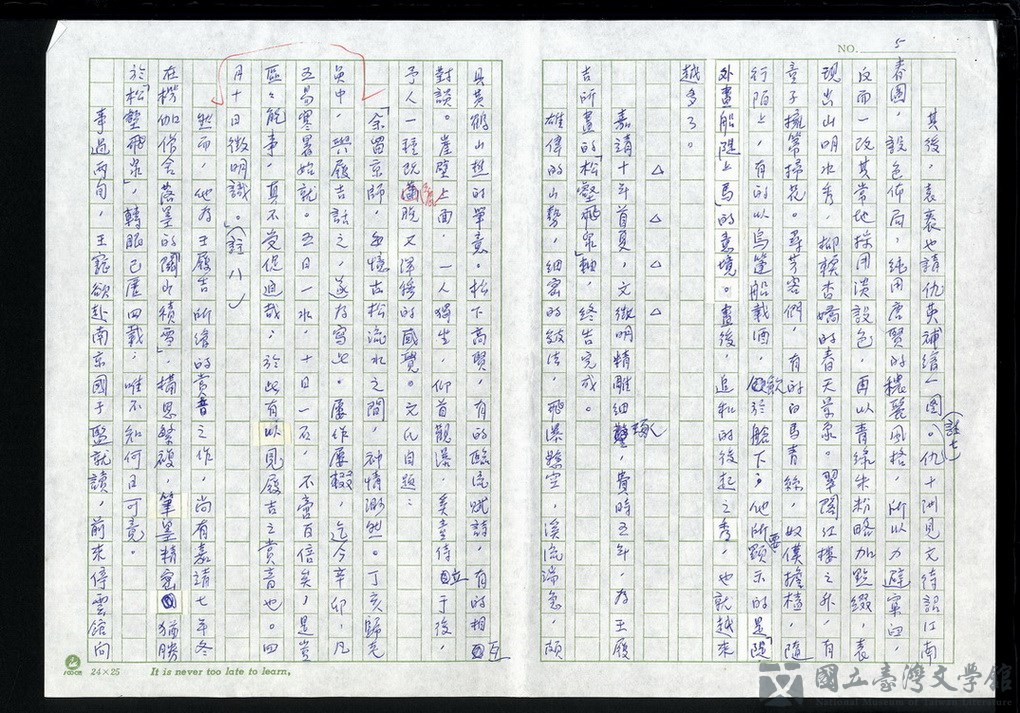 NO. 5
其後，袁袠也請仇英補繪一圖。(註七)仇十洲見文待詔江南
春圖，設色佈局，純用唐賢的穠麗風格，所以力避窠臼，
反而一改其常地採用淡設色，再以青綠朱粉略加點綴，表
現出山明水秀，柳輭杏嬌的春天景象。翠閣紅樓之外，有
童子擁箒掃花。尋芳客們，有的白馬青絲，奴僕擔榼，隨
行陌上，有的以烏篷船載酒，飲於艙下；他所要顯示的是「隄
外畫船隄上馬」的意境。畫後，追和的後起之秀，也就越來
越多了。
△ △ △ △
嘉靖十年首夏，文徵明精雕細琢，費時五年，為王履
吉所畫的「松壑飛泉」軸，終告完成。
雄偉的山勢，細密的皴法，飛瀑懸空，溪流湍急，頗
具黃鶴山樵的筆意。松下高賢，有的臨流賦詩，有的相互
對談。崖壁上面，一人獨坐，仰首觀瀑，奚童侍立于後，
予人一種既瀟脫又渾穆的感覺。文氏自題：
「余留京師，每憶古松流水之間，神情渺然。丁亥歸老
吳中，與履吉話之，遂為寫此。屢作屢輟，迄今辛卯，凡
五易寒暑始就。五日一水，十日一石，不啻百倍矣，是豈
區々能事，真不受促迫哉；於此有以見履吉之賞音也。四
月十日徵明識。」(註八)
然而，他為王履吉所繪的賞音之作，尚有嘉靖七年冬
在楞伽僧舍落墨的「關山積雪」，構思繁複，筆墨精密猶勝
於「松壑飛泉」，轉眼已歷四載，唯不知何日可竟。
事過兩旬，王寵欲赴南京國子監就讀，前來停雲館向
24×25 It is never too late to learn.
國立臺灣文學館
National Museum of Taiwan Literature